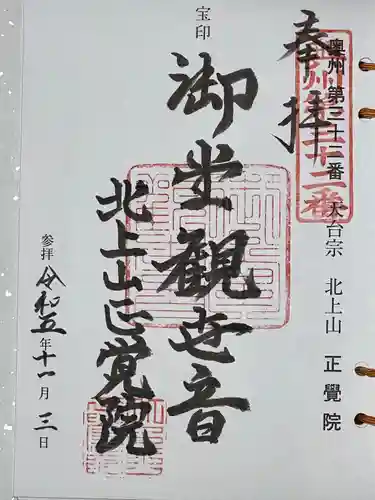 奥州 第三十二番 天台宗 北上山 正覺院
奉拝
宝印
御堂観世音
北上山正覚院
参拝 令和五年十一月三日